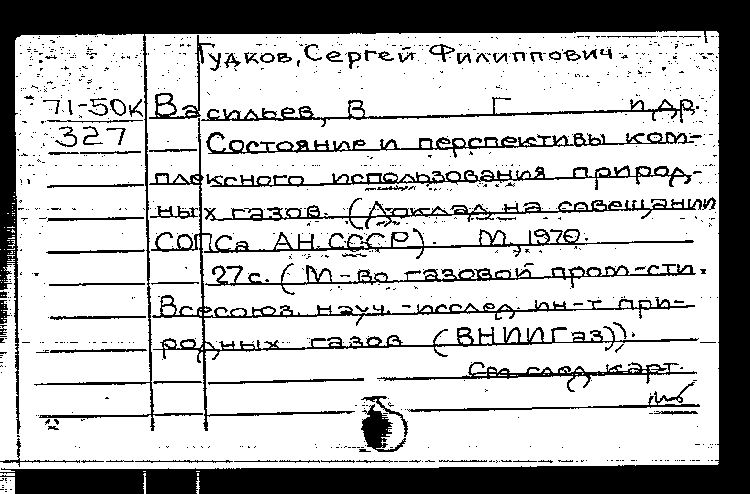 Гудков, Сергей Филиппович
71-50к Васильев, В Г и др.
327 Состояние и перспективы ком-
плексного использования природ-
ных газов. (Доклад на совещании
СОПСа АН СССР). М, 1970.
27 с. (М-во газовой пром-сти.
Всесоюз. науч.-исслед. ин-т при-
родных газов (ВНИИГаз)).
См след. карт.